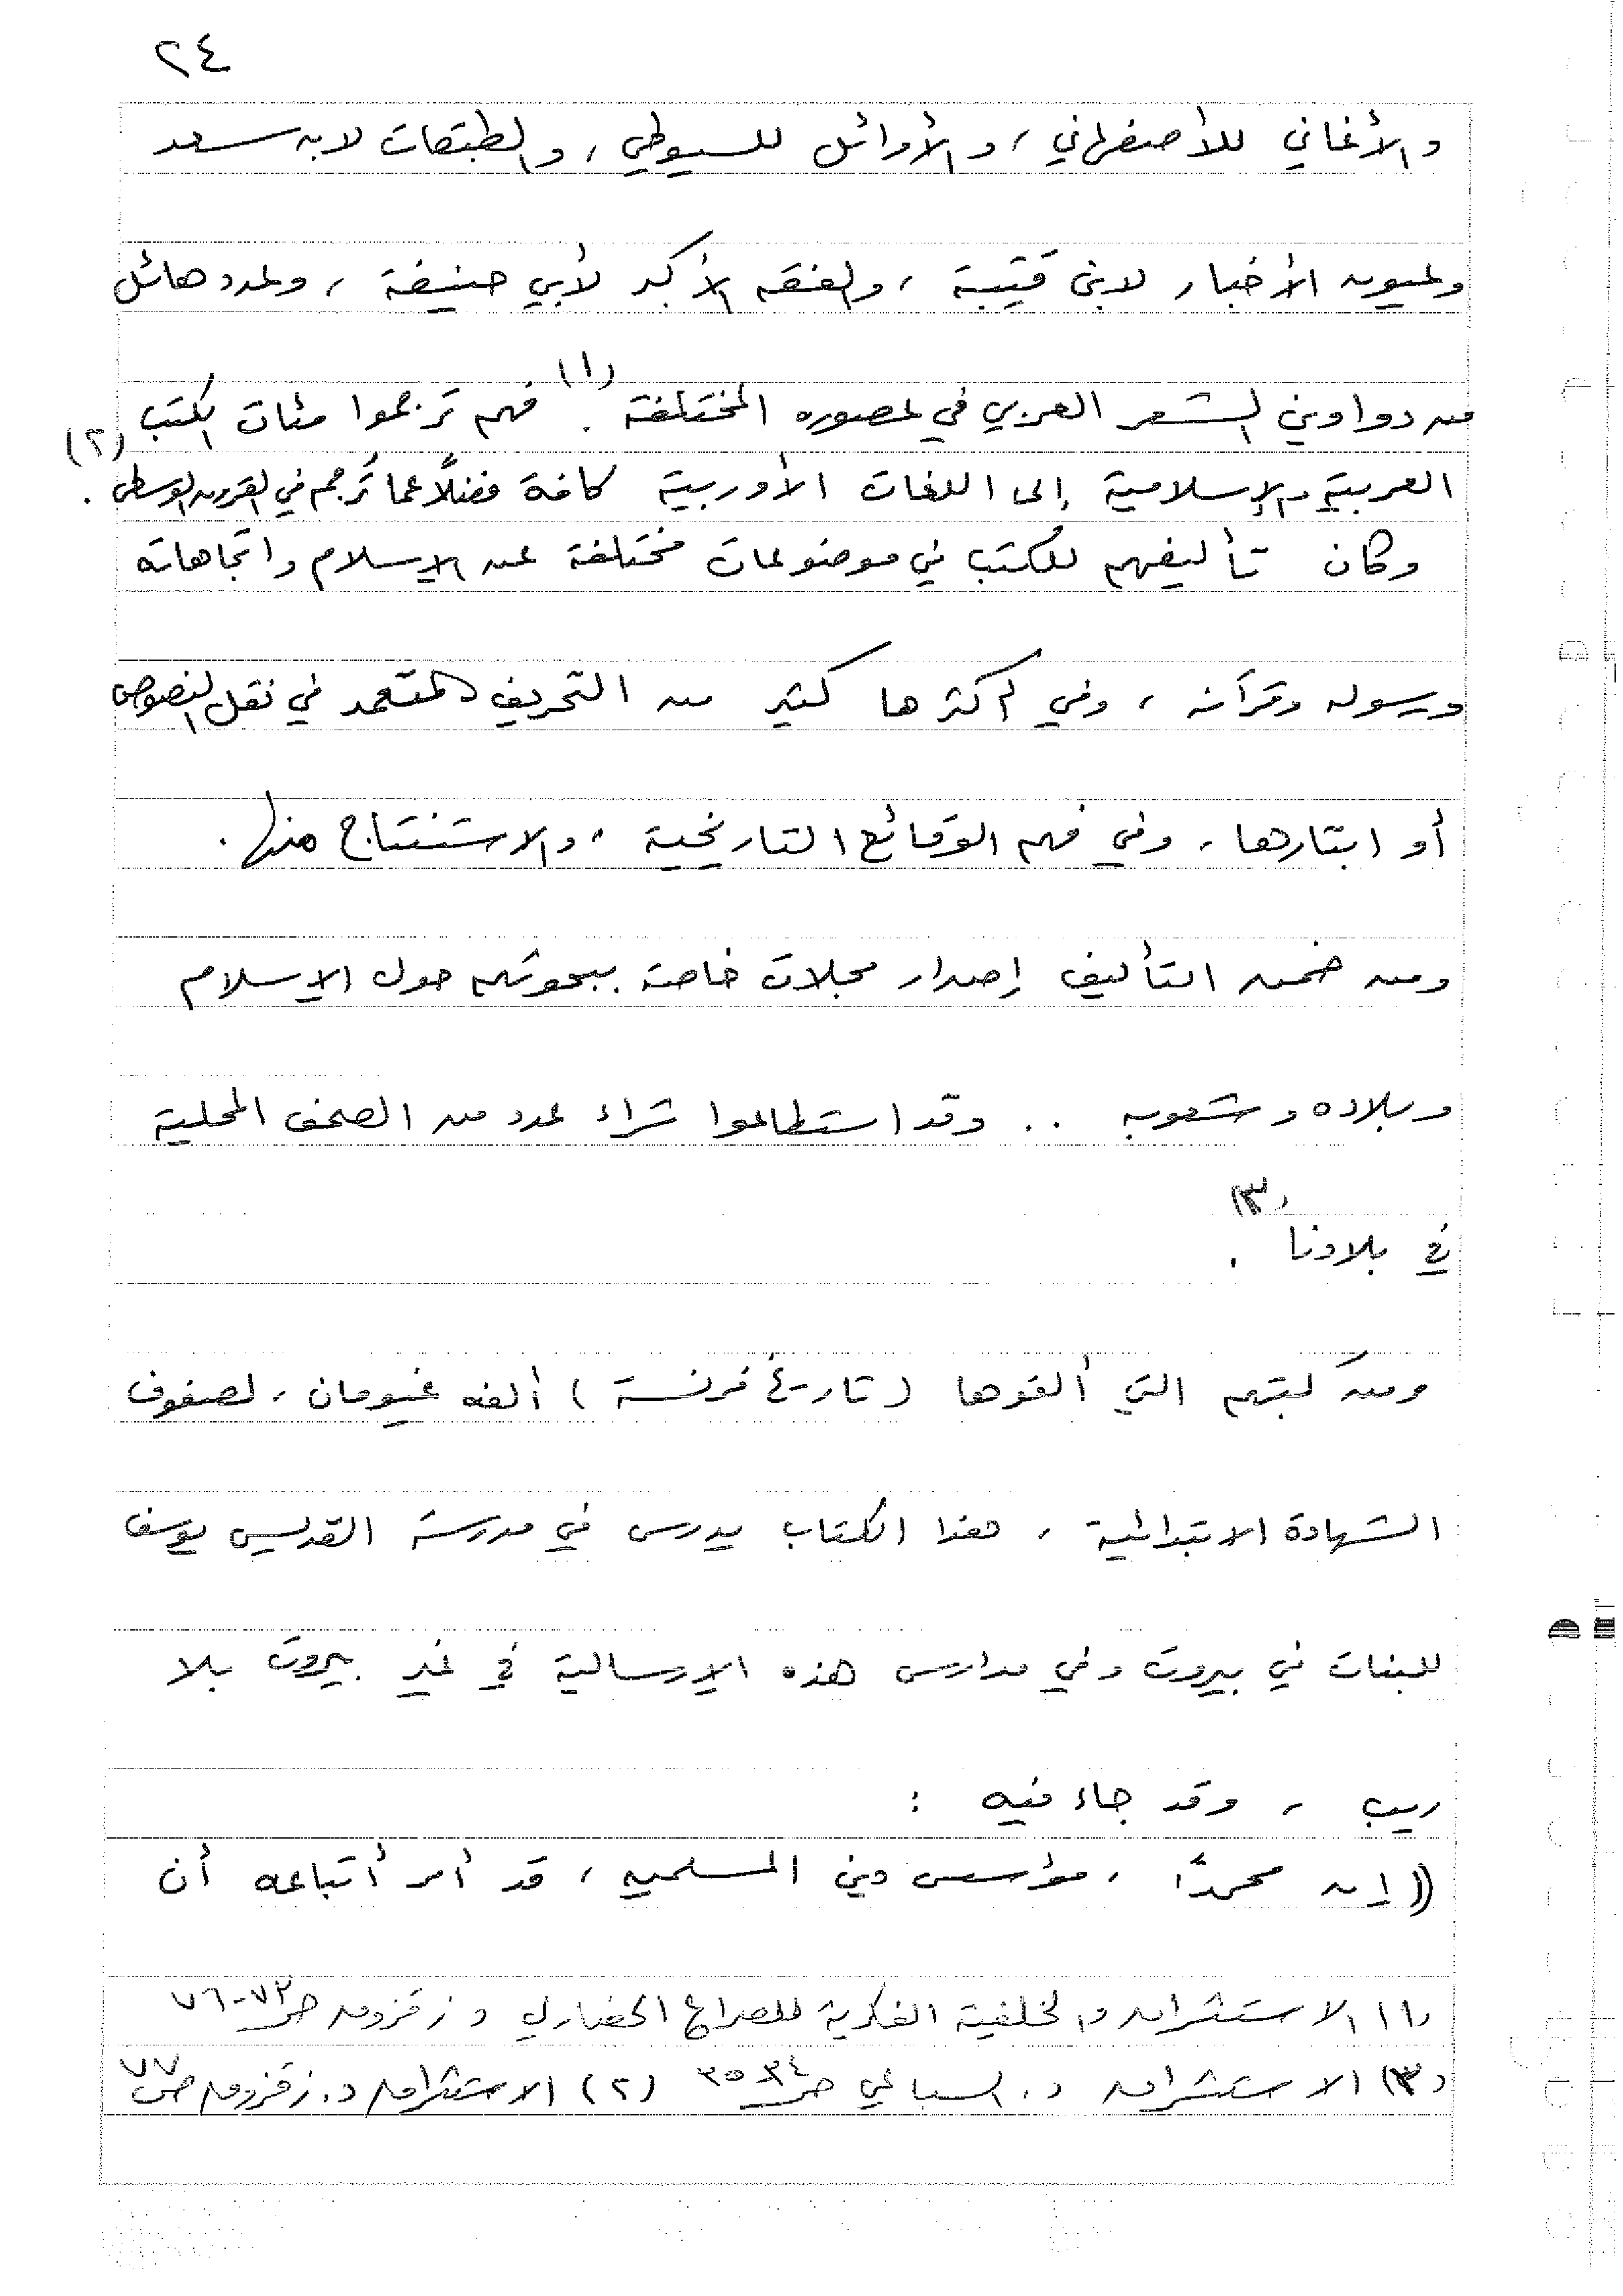 ٢٤
والأغاني للأصفهاني ، والأوائل للسيوطي ، والطبقات لابن سعد
وعيون الأخبار لابن قتيبة ، والفقه الأكبر لأبي حنيفة ، وعدد هائل
من دواوين الشعر العربي في عصوره المختلفة (١) . فهم ترجموا مئات الكتب
العربية والإسلامية إلى اللغات الأوربية كافة فضلاً عما تُرجم في القرون الوسطى (٢) .
وكان تأليفهم للكتب في موضوعات مختلفة عن الإسلام واتجاهاته
ورسوله وقرآنه ، وفي أكثرها كثير من التحريف المتعمد في نقل النصوص
أو ابتارها ، وفي فهم الوقائع التاريخية ، والاستنتاج منها .
ومن ضمن التأليف إصدار مجلات خاصة ببحوثهم حول الإسلام
وبلاده وشعوبه .. وقد استطاعوا شراء عدد من الصحف المحلية
في بلادنا (٣) .
ومن كتبهم التي ألفوها ( تاريخ فرنسة ) ألفه غيومان ، لصفوف
الشهادة الابتدائية ، هذا الكتاب يدرس في مدرسة القديس يوسف
للبنات في بيروت وفي مدارس هذه الإرسالية في غير بيروت بلا
ريب ، وقد جاء فيه :
(( إن محمدًا ، مؤسس دين المسلمين ، قد أمر أتباعه أن
(١) الاستشراق والخلفية الفكرية للصراع الحضاري د زقزوق ص ٧٢-٧٦
(٣) الاستشراق د. السباعي ص ٣٤-٣٥ (٢) الاستشراق د. زقزوق ص ٧٧